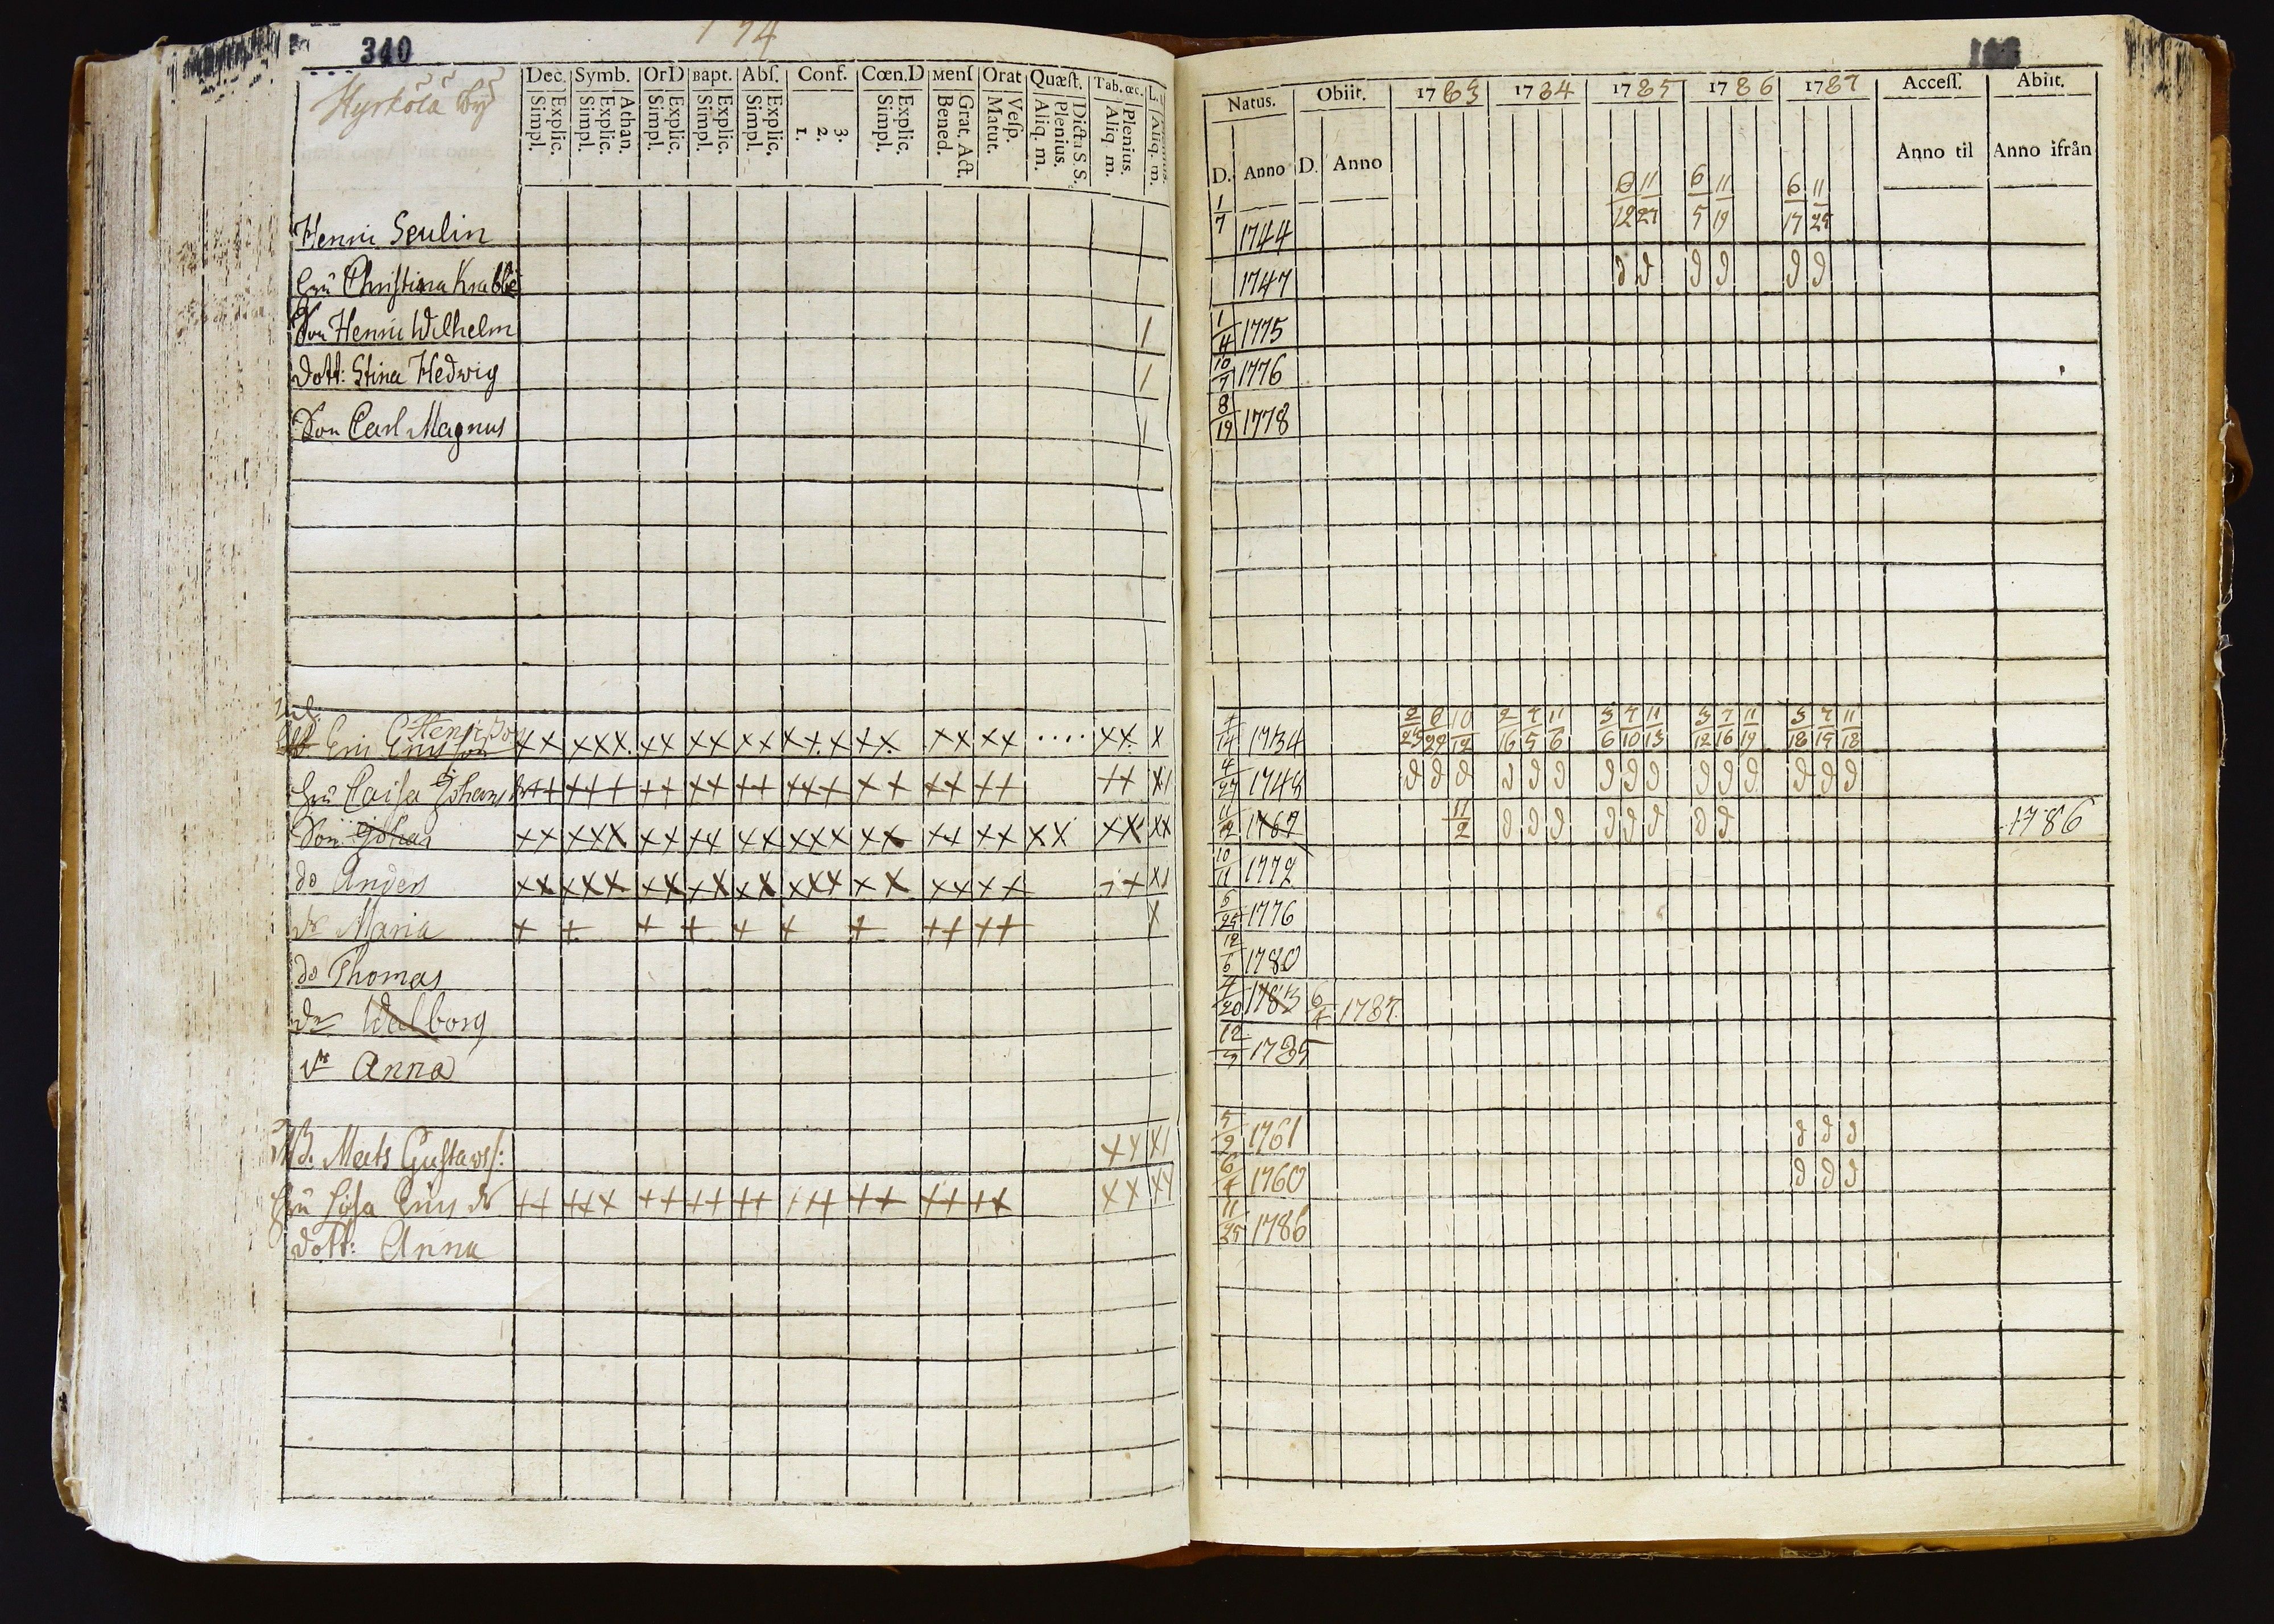 340
174
Hyrkölä By
Dec. Symb. OrD Bapt. Abſ. Conf. Cœn.D Menſ Orat Quæſt. Tab. œc.
Explic. Simpl. Athan. Explic. Simpl. Explic. Simpl. Explic. Simpl. Explic. Simpl. 3. 2. 1. Explic. Simpl. Grat. Act. Bened. Veſp. Matut. Dicta S.S. Plenius. Aliq. m. Plenius. Aliq. m. Aliq. m.
Natus. Obiit. 1783 1784 1785 1786 1787 Acceſſ. Abiit.
D. Anno D. Anno Anno til Anno ifrån
6/12 11/27 6/5 11/19 6/17 11/25
Henric 1/7 1744
hru Christina Krabbe 1747 d d d d d d
Son Henric Wilhelm 1 1/4 1775
dott: Stina Hedwig 1 10/7 1776
Son Carl Magnus 1 8/19 1778
Eric Ericsson Henricsson x x x x x x x x x x x x x x x x x x x x x x x x x /14 1734 2/23 6/29 10/12 2/16 7/5 11/6 3/6 7/10 11/13 3/12 7/16 11/19 3/18 7/15 11/18
hru Caisa Johansdr + + + + + + + + + + + + + + + x x + + + + + + x1 4/27 1744 d d d d d d d d d d d d d d d
Son Johan x x x x x x x x x x x x x x x x x x x x x x x x x x x 11/12 1767 11/2 d d d d d d d d 1786
do Anders x x x x x x x x x x x x x x x x x x x x x x + x1 10/11 1772
dr Maria + + + + + + + + + + + x 5/25 1776
do Thomas 12/6 1780
dr Walborg 4/20 1783 6/4 1787.
dr Anna 12/3 1785
Mats Gustavss: x x x1 5/9 1761 d d d
hru Lisa Ericsdr + + + + x + + + + + + + + + + + + + + + x x x x x 6/4 1760 d d d
dott: Anna 11/25 1786